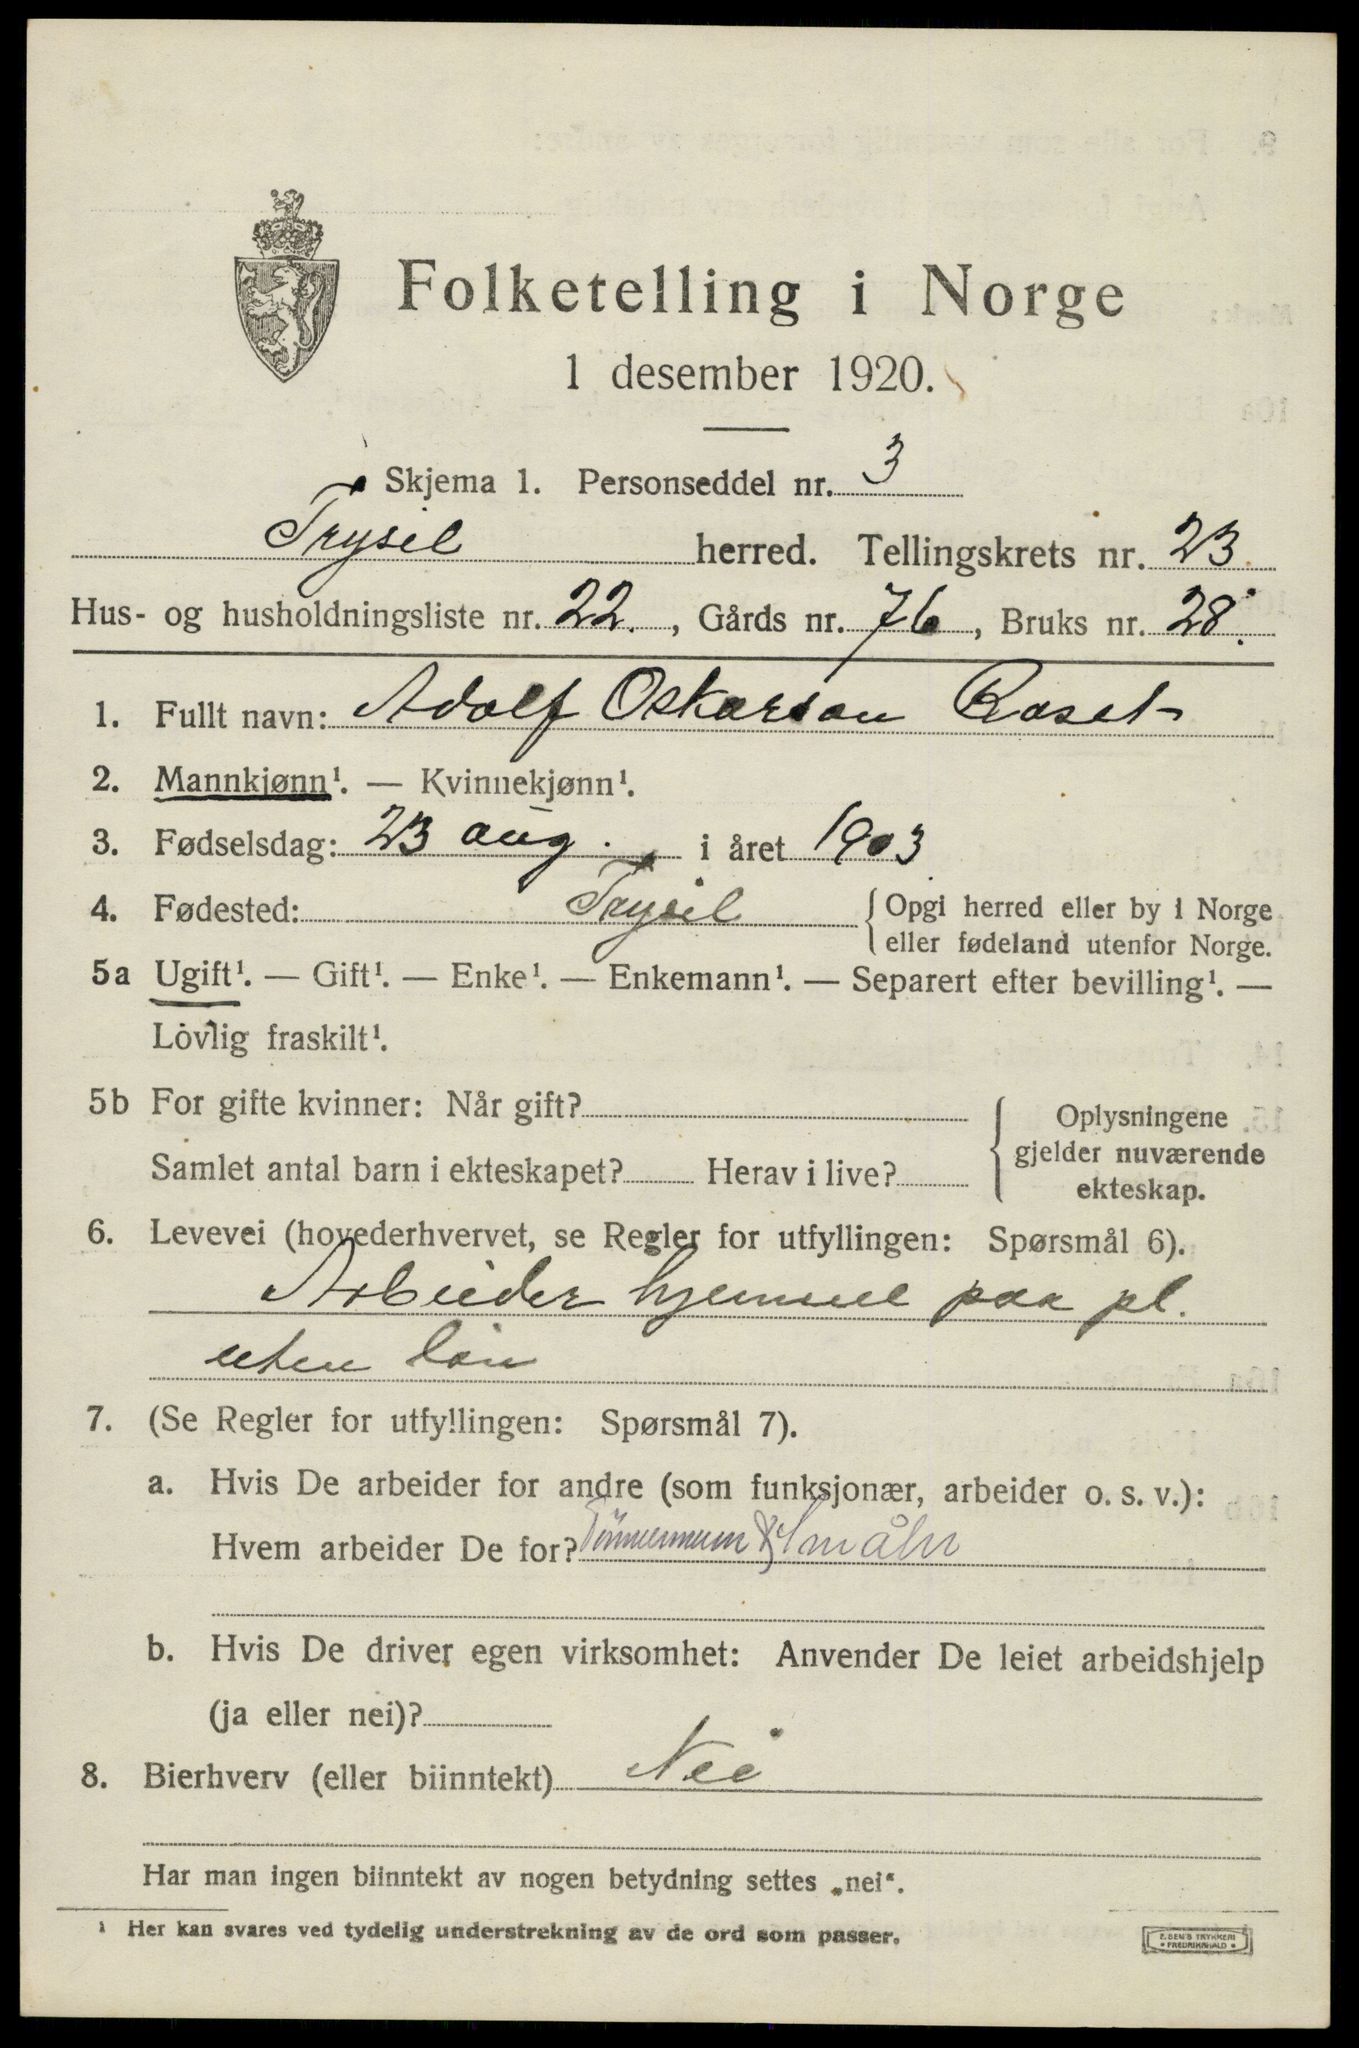 Folketelling i Norge
1 desember 1920.
Skjema 1. Personseddel nr. 3
Trysil herred. Tellingskrets nr. 23
Hus- og husholdningsliste nr. 22., Gårds nr. 76, Bruks nr. 28.
1. Fullt navn: Adolf Oskarson Roset
2. Mannkjønn¹. — Kvinnekjønn¹.
3. Fødselsdag: 23 aug. i året 1903
4. Fødested: Trysil { Opgi herred eller by i Norge
eller fødeland utenfor Norge.
5a Ugift¹. — Gift¹. — Enke¹. — Enkemann¹. — Separert efter bevilling¹. —
Lovlig fraskilt¹.
5b For gifte kvinner: Når gift?
Samlet antal barn i ekteskapet? Herav i live?
{ Oplysningene
gjelder nuværende
ekteskap.
6. Levevei (hovederhvervet, se Regler for utfyllingen: Spørsmål 6).
Arbeider hjemme paa pl.
uten løn
7. (Se Regler for utfyllingen: Spørsmål 7).
a. Hvis De arbeider for andre (som funksjonær, arbeider o. s. v.):
Hvem arbeider De for?
b. Hvis De driver egen virksomhet: Anvender De leiet arbeidshjelp
(ja eller nei)?
8. Bierhverv (eller biinntekt) Nei
Har man ingen biinntekt av nogen betydning settes „nei“.
¹ Her kan svares ved tydelig understrekning av de ord som passer.